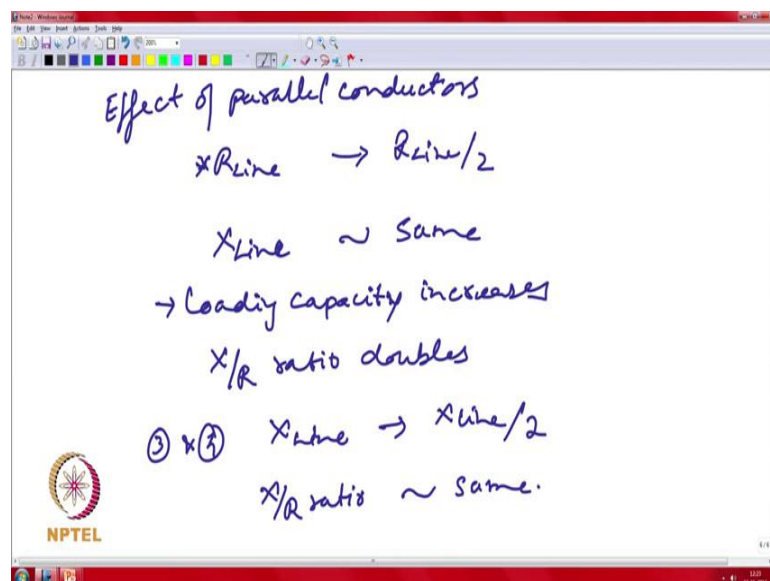 Note2 - Windows Journal
File Edit View Insert Actions Tools Help
200%
Effect of parallel conductors
*RLine → RLine/2
XLine ~ Same
→ Loading capacity increases
X/R ratio doubles
③ & ④ XLine → XLine/2
X/R ratio ~ Same.
NPTEL
6/6
12:23